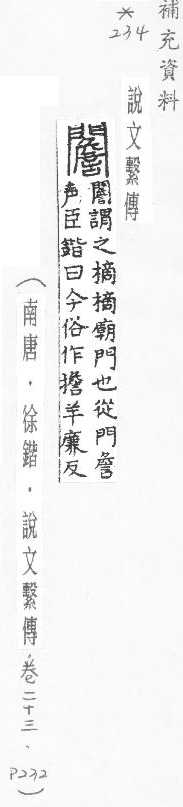 補充資料
*234
說文繫傳
閻謂之摘摘廟門也從門詹
声臣鍇曰今俗作擔羊廉反
(南唐．徐鍇．說文繫傳，卷二十三、P232)